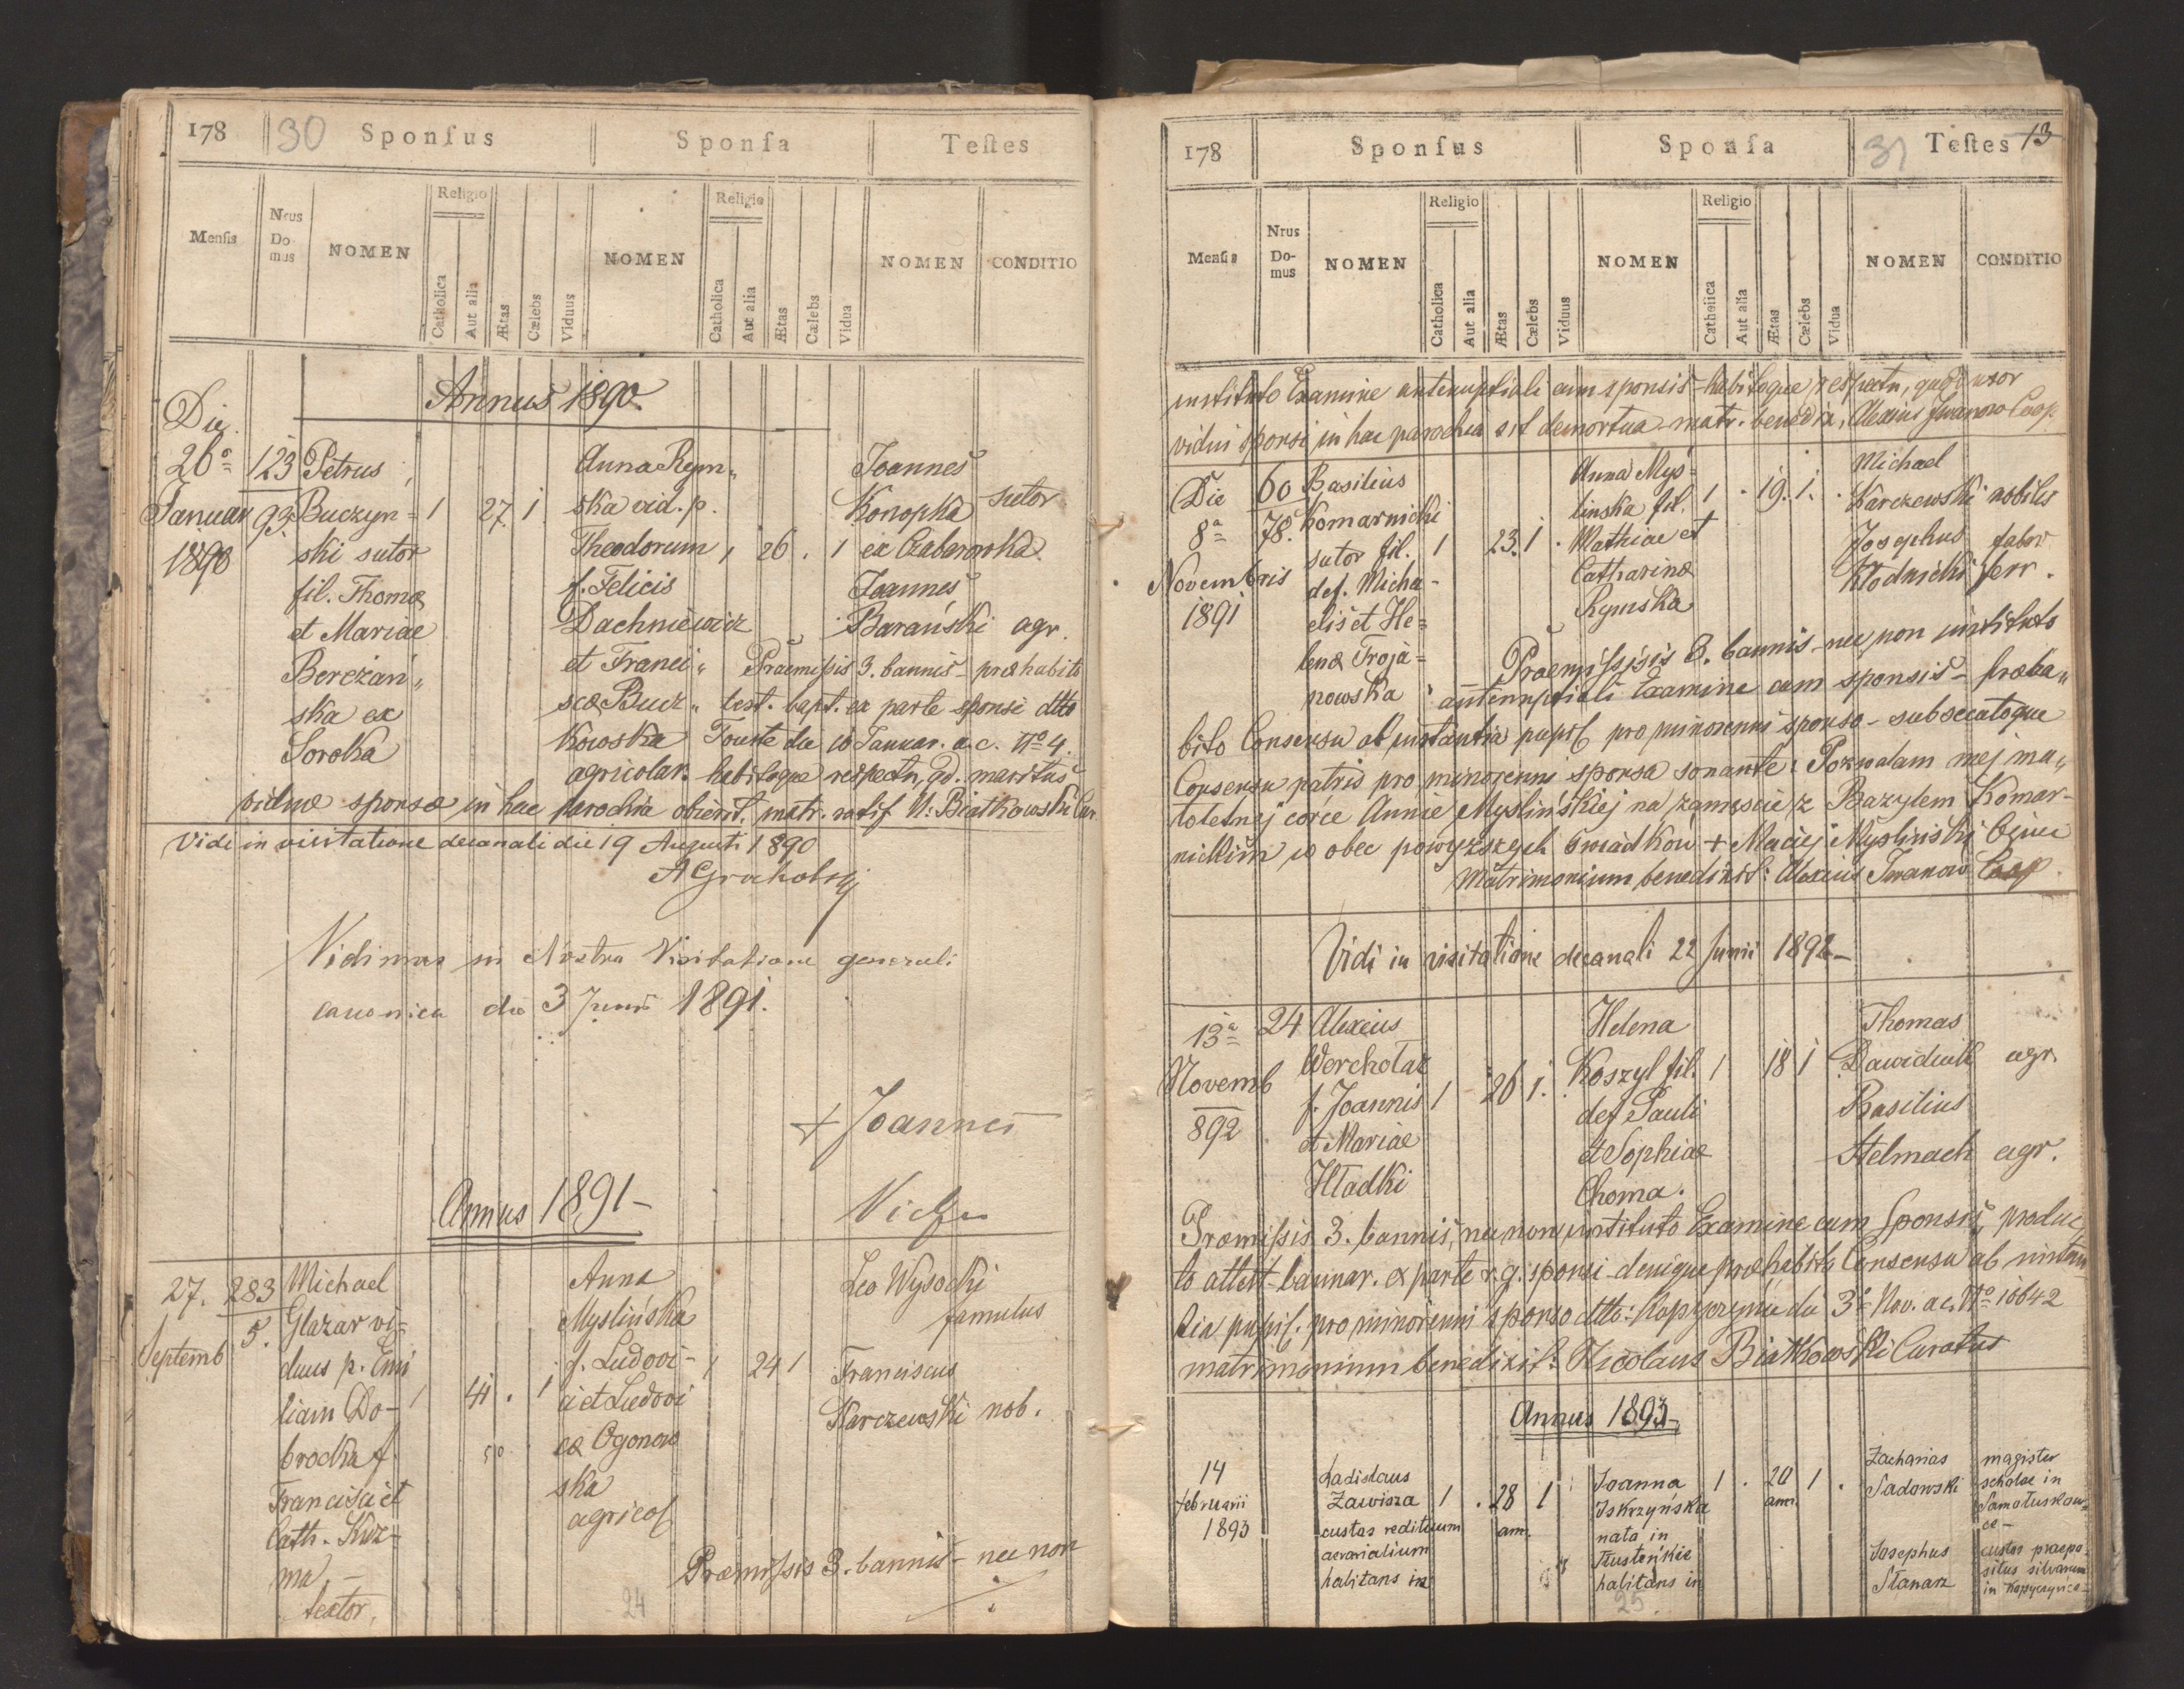 178 30 Sponſus Sponſa Teſtes
Menſis Nrus Domus NOMEN Religio Catholica Aut alia Ætas Cælebs Viduus NOMEN Religio Catholica Aut alia Ætas Cælebs Vidua NOMEN CONDITIO
Annus 1890.
Die
26a 123 Petrus Anna Rym„ Joannes
Januar 93. Buczyn= 1 27. 1 ska vid. p. Konopka sutor
1890 ski sutor Theodorum 1 26 . 1 ex Czabarowka
fil. Thomæ f. Felicis Joannes
et Mariae Dachniewicz Barański agr.
Berezań„ et Franci„ Præmissis 3. bannis – præhabito
ska ex scæ Bucz„ test. bapt. ex parte sponsi dtto
Soroka kowska Touste die 10 Januar. a.c. No 4.
agricolar. habitoque respectu, qd. maritus
viduæ sponsæ in hac parochia obierit, matr. ratif N: Białkowski Cur.
Vidi in visitatione decanali die 19 Augusti 1890
Vidimus in Nostra Visitatione generali
canonica die 3 Junii 1891.
+ Joannes
Annus 1891–
27. 283 Michael Anna Leo Wysocki
5. Glazar vi= Myslińska famulus
Septemb duus p. Emi f. Ludovi– 1 24 1 Franciscus
liam Do– 1 41 . 1 ci et Ludovi Karczewski nob.
brocka f. 50 cæ Ogonow
Francisci et ska
Cath. Kuz– agricol
ma – Præmissis 3. bannis – nec non
textor. 24 ./.
178 Sponſus Sponſa 31 Teſtes 13
Menſis Nrus Domus NOMEN Religio Catholica Aut alia Ætas Cælebs Viduus NOMEN Religio Catholica Aut alia Ætas Cælebs Vidua NOMEN CONDITIO
instituto Examine antenuptiali cum sponsis – habitoque respectu, quod uxor
vidui sponsi in hac parochia sit demortua – matr. bened ix. Alexius Iwanow Coop.
Die 60 Basilius Anna Myś= Michael
8a 78. Komarnicki linska fil. 1 . 19. 1. Karczewski nobilis
Novembris sutor fil. 1 23. 1 . Mathiae et Josephus faber
1891 def. Micha– Catharinæ Kłodnicki ferr.
elis et He= Rymska
lenæ Troja= Praemissis 3. bannis – nec non instituto
nowska antenuptiali Examine cum sponsis – præha„
bito Consensu ab instantia pupil pro minorenni sponso – subsecutoque
Consensu patris pro minorenni sponsa sonante: Pozwalam mej ma„
toletnej córce Annie Myslińskiej na zamęscie z Bazylem Komar–
nickim w obec powyższych swiadków + Maciej Mysliński Ojciec
Matrimonium benedixit: Alexius Iwanow Coop
Vidi in visitatione decanali 22 Junii 1892–
13a 24 Alexius Helena Thomas
Novemb Werchołaz Koszyl fil. 1 18 1 Dawidiuk agr.
892 f. Joannis 1 26 1. def Pauli Basilius
et Mariae et Sophiae Stelmach agr.
Hładki Choma.
Præmissis 3. bannis, nec non instituto Examine cum Sponsis, produc
to attest. bannar. ex parte r. g. sponsi – denique præhabito Consensu ab instan
tia pupil. pro minorenni sponso dtto: Kopyczynie die 3a Nov. a.c. No 10642
matrimonium benedixit: Nicolaus Białkowski Curatus
Annus 1893–
14 Ladislaus Joanna 1 . 20 1 . Zacharias magister
februarii Zawisza 1 . 28 1 Iskrzyńska ann. Sadowski scholae in
1893 custos redituum ann. nata in Samołuskow=
aerarialium Tłusteńkie ce–
habitans in habitans in Josephus custos praepo–
Słanarz situs silvarum
25. in Kopyczyńce–